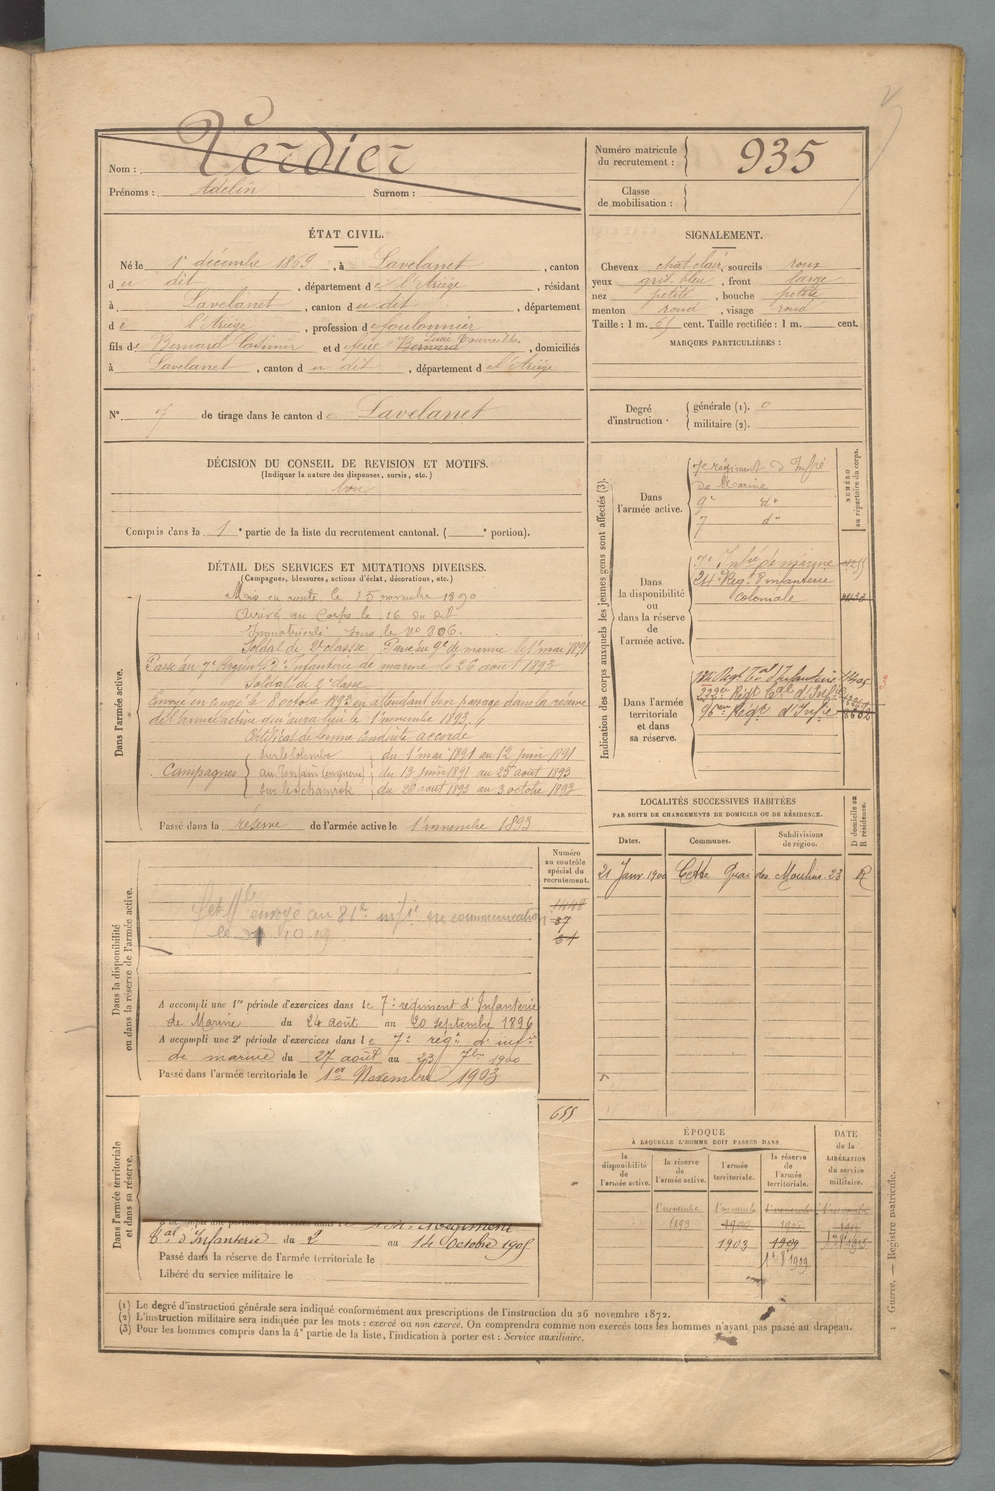 Nom : Verdier
Prénoms : Adelin Surnom :
Numéro matricule du recrutement : 935
Classe de mobilisation :
ÉTAT CIVIL.
Né le 1r décembre 1869, à Lavelanet, canton
du dit, département de l'Ariège, résidant
à Lavelanet, canton du dit, département
de l'Ariège, profession de foulonnier
fils de Bernard Casimir et de feue Bernard, domiciliés
à Lavelanet, canton du dit, département de l'Ariège
N° 7 de tirage dans le canton de Lavelanet
SIGNALEMENT.
Cheveux chat clair, sourcils roux
yeux gris bleu, front large
nez petit, bouche petite
menton rond, visage rond
Taille : 1 m. cent. Taille rectifiée : 1 m. cent.
MARQUES PARTICULIÈRES :
Degré d'instruction. générale (1). 0
militaire (2).
DÉCISION DU CONSEIL DE REVISION ET MOTIFS.
(Indiquer la nature des dispenses, sursis, etc.)
bon
Compris dans la 1e partie de la liste du recrutement cantonal. ( e portion).
DÉTAIL DES SERVICES ET MUTATIONS DIVERSES.
(Campagnes, blessures, actions d'éclat, décorations, etc.)
Dans l'armée active.
Mis en route le 15 novembre 1890
Arrivé au Corps le 16 du dit
Immatriculé sous le No 806.
Soldat de 2e classe, Passé au 9e de marine le 1r mai 1891
Passé au 7e Régiment d'Infanterie de marine le 26 août 1893
Soldat de 2e classe
Envoyé en congé le 8 octobre 1893 en attendant son passage dans la réserve
de l'armée active qui aura lieu le 1r novembre 1893,
Certificat de bonne conduite accordé
Campagnes
sur le Colombo du 1r mai 1891 au 12 juin 1891
au Tonkin du 13 juin 1891 au 25 août 1893
sur le Chamrok du 26 août 1893 au 3 octobre 1893
Passé dans la réserve de l'armée active le 1r novembre 1893
Indication des corps auxquels les jeunes gens sont affectés (3).
NUMÉRO au répertoire du corps.
Dans l'armée active.
7e régiment d'Infie
de Marine
9e do
7 do
Dans la disponibilité ou dans la réserve de l'armée active.
7e Infie de marine
24e Régt d'infanterie
coloniale
Dans l'armée territoriale et dans sa réserve.
Régt Tal d'Infanterie
Régt d'Infie
LOCALITÉS SUCCESSIVES HABITÉES
PAR SUITE DE CHANGEMENTS DE DOMICILE OU DE RÉSIDENCE.
Dates. Communes. Subdivisions de région. D domicile ou R résidence.
21 Janv. 1900 Cette Quai des Moulins 23 R
Dans la disponibilité ou dans la réserve de l'armée active.
Numéro au contrôle spécial du recrutement.
1448
37
envoyé au 81e infie en communication
le 10-19
A accompli une 1re période d'exercices dans le 7e régiment d'Infanterie
de Marine du 24 août au 20 septembre 1896
A accompli une 2e période d'exercices dans le 7e régt d'infie
de marine du 27 août au 23 7bre 1900
Passé dans l'armée territoriale le 1er Novembre 1903
Dans l'armée territoriale et dans sa réserve.
655
Régiment
Tal d'Infanterie du 2 au 14 Octobre 1905
Passé dans la réserve de l'armée territoriale le
Libéré du service militaire le
ÉPOQUE
A LAQUELLE L'HOMME DOIT PASSER DANS
la disponibilité de l'armée active.
la réserve de l'armée active.
l'armée territoriale.
la réserve de l'armée territoriale.
DATE de la LIBÉRATION du service militaire.
1r novembre 1r novembre 1r novembre 1r novembre
1893 1900
1903 1909
(1) Le degré d'instruction générale sera indiqué conformément aux prescriptions de l'instruction du 26 novembre 1872.
(2) L'instruction militaire sera indiquée par les mots : exercé ou non exercé. On comprendra comme non exercés tous les hommes n'ayant pas passé au drapeau.
(3) Pour les hommes compris dans la 4e partie de la liste, l'indication à porter est : Service auxiliaire.
Guerre. — Registre matricule.